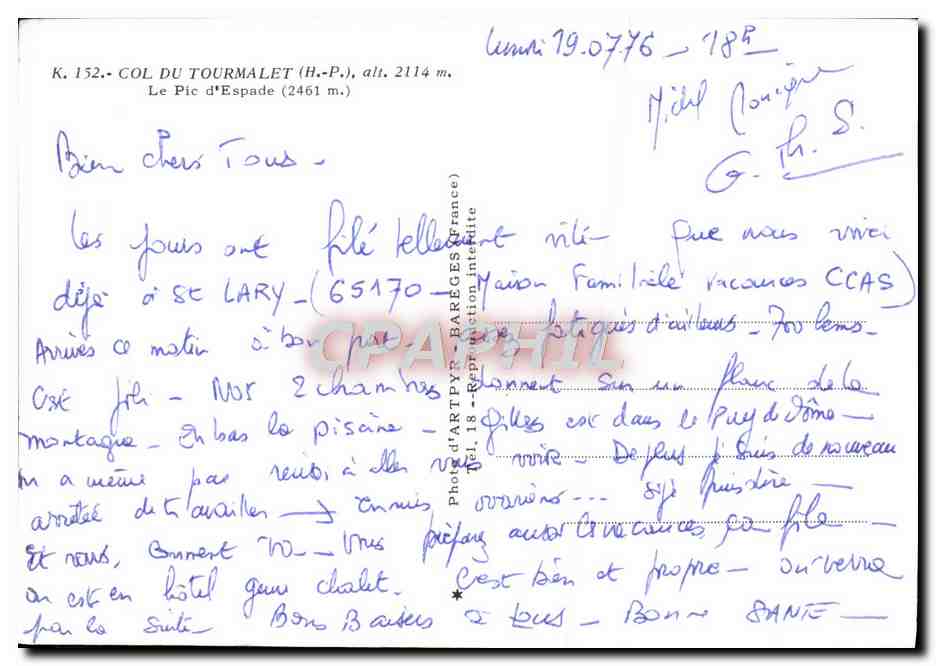 lundi 19.07.76 - 18h
K. 152.- COL DU TOURMALET (H.-P.), alt. 2114 m.
Le Pic d'Espade (2461 m.)
Michel Monique
G. Th. S.
Bien chers Tous -
Les jours ont filé tellement vite - que nous voici
déjà à St LARY - (65170 - Maison Familiale vacances CCAS)
Arrivés ce matin à bon port - assez fatigués d'ailleurs - 700 kms -
C'est joli - Nos 2 chambres donnent sur un flanc de la
montagne - En bas la piscine - Gilles est dans le Puy de Dôme -
On a même pas réussi à aller vous voir - De plus je suis de nouveau
arrêtée de travailler → Ennuis ovariens... si je puis dire -
Et vous, comment va - Vous préparez aussi les vacances, ça file -
on est en hôtel genre chalet. C'est bien et propre - on verra
par la suite - Bons Baisers à tous - Bonne SANTE -
Photo d'ARTPYR - BAREGES (France)
Tel. 18 - Reproduction interdite
CPAPHIL